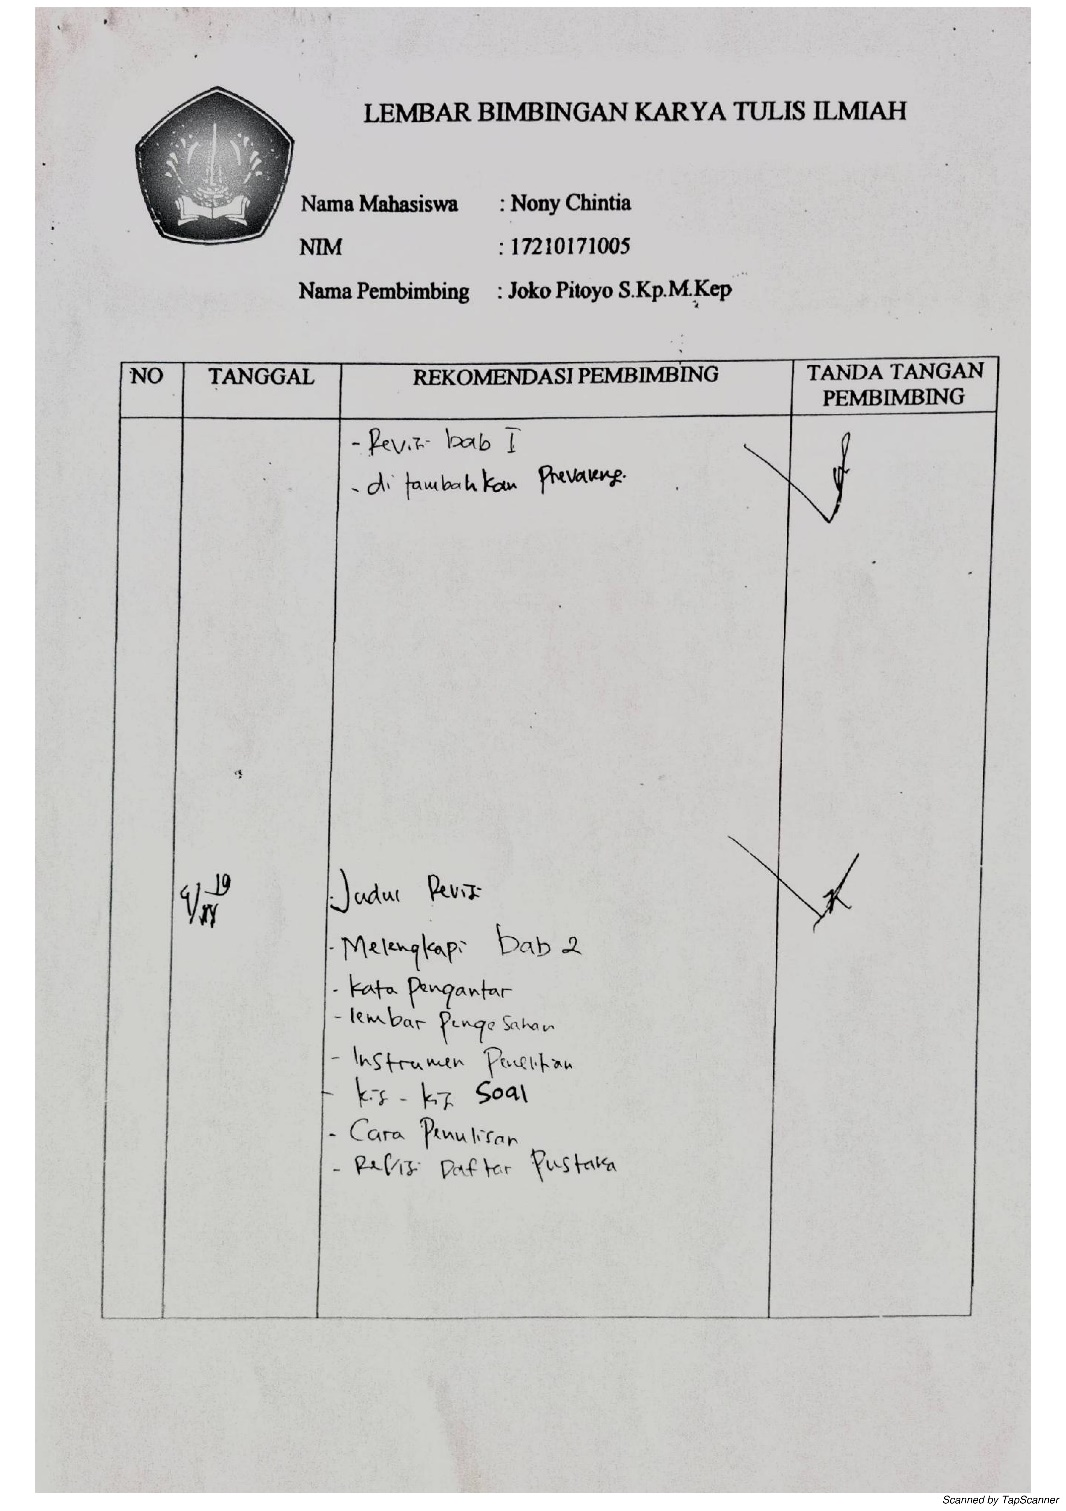 LEMBAR BIMBINGAN KARYA TULIS ILMIAH
Nama Mahasiswa : Nony Chintia
NIM : 17210171005
Nama Pembimbing : Joko Pitoyo S.Kp.M.Kep
NO TANGGAL REKOMENDASI PEMBIMBING TANDA TANGAN PEMBIMBING
- Revizi bab I
- di tambahkan
19
- Judul Revizi
- Melengkapi bab 2
- kata pengantar
- lembar pengesahan
- Instrumen Penelitian
- kisi - kizi Soal
- Cara Penulisan
- Revisi Daftar Pustaka
Scanned by TapScanner